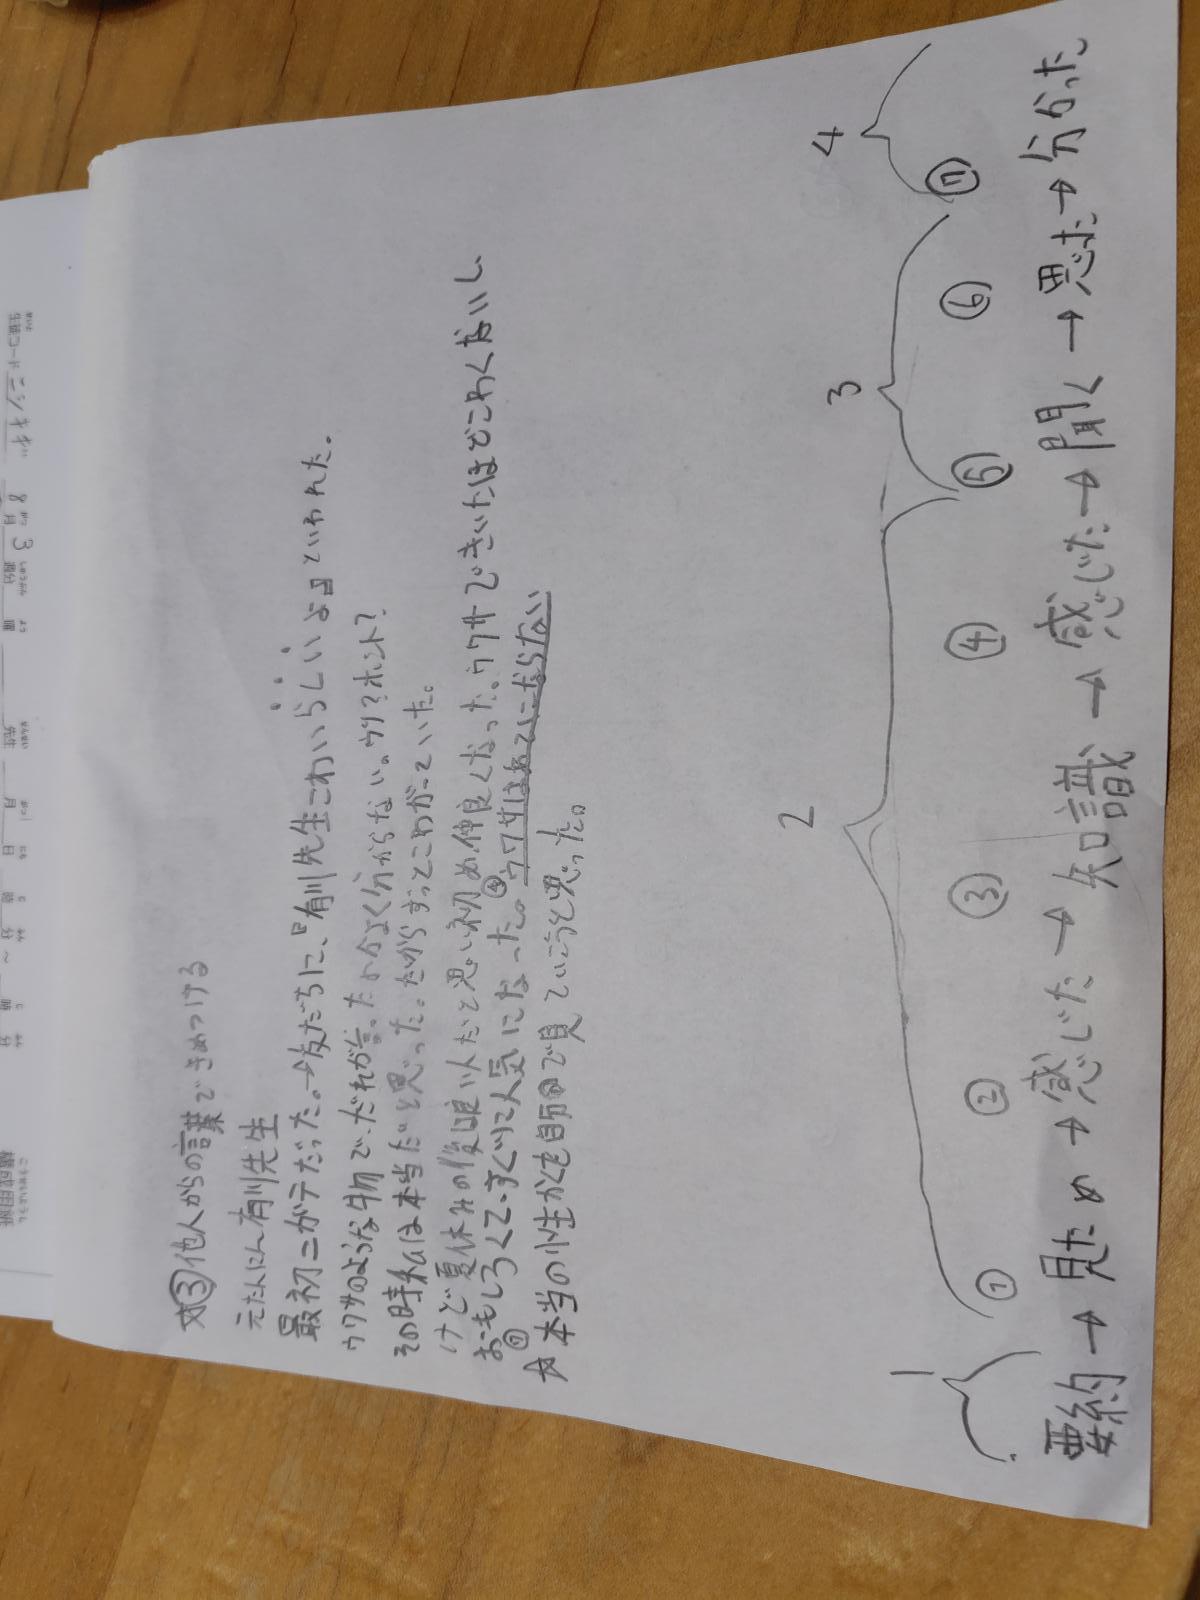 対③他人からの言葉できめつける
元たんにん有川先生
最初ニガテだった。→友だちに、『有川先生こわいらしいよ』といわれた。
ウワサのような物で、だれが言ったかよく分からない。ウソ?ホント?
その時私は本当だと思った。だからずっとこわがっていた。
けど夏休みの後は良い人だと思い初め、仲良くなった。ウワサできいたほどこわくないし、
おもしろくて、すぐに人気になった。④ウワサはあてにならない
⑦
☆本当の小生かくを自分の目で見ていこうと思った。
1 2 3 4
① ② ③ ④ ⑤ ⑥ ⑦
要約→見ため→感じた→知識→感じた→聞く→思た→分かった
生徒コード ニシキギ 8月 3週分 曜 先生 月 日 時 分 ~ 時 分
構成用紙